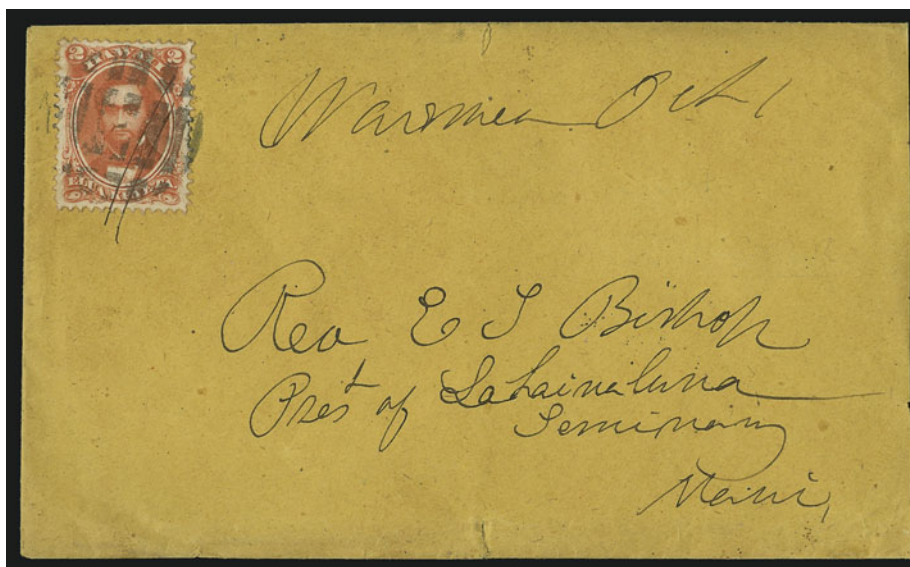 2 HAWAII 2
Waimea Oct 1
Rev E S Bishop
Prest of Lahainaluna
Seminary
Maui,